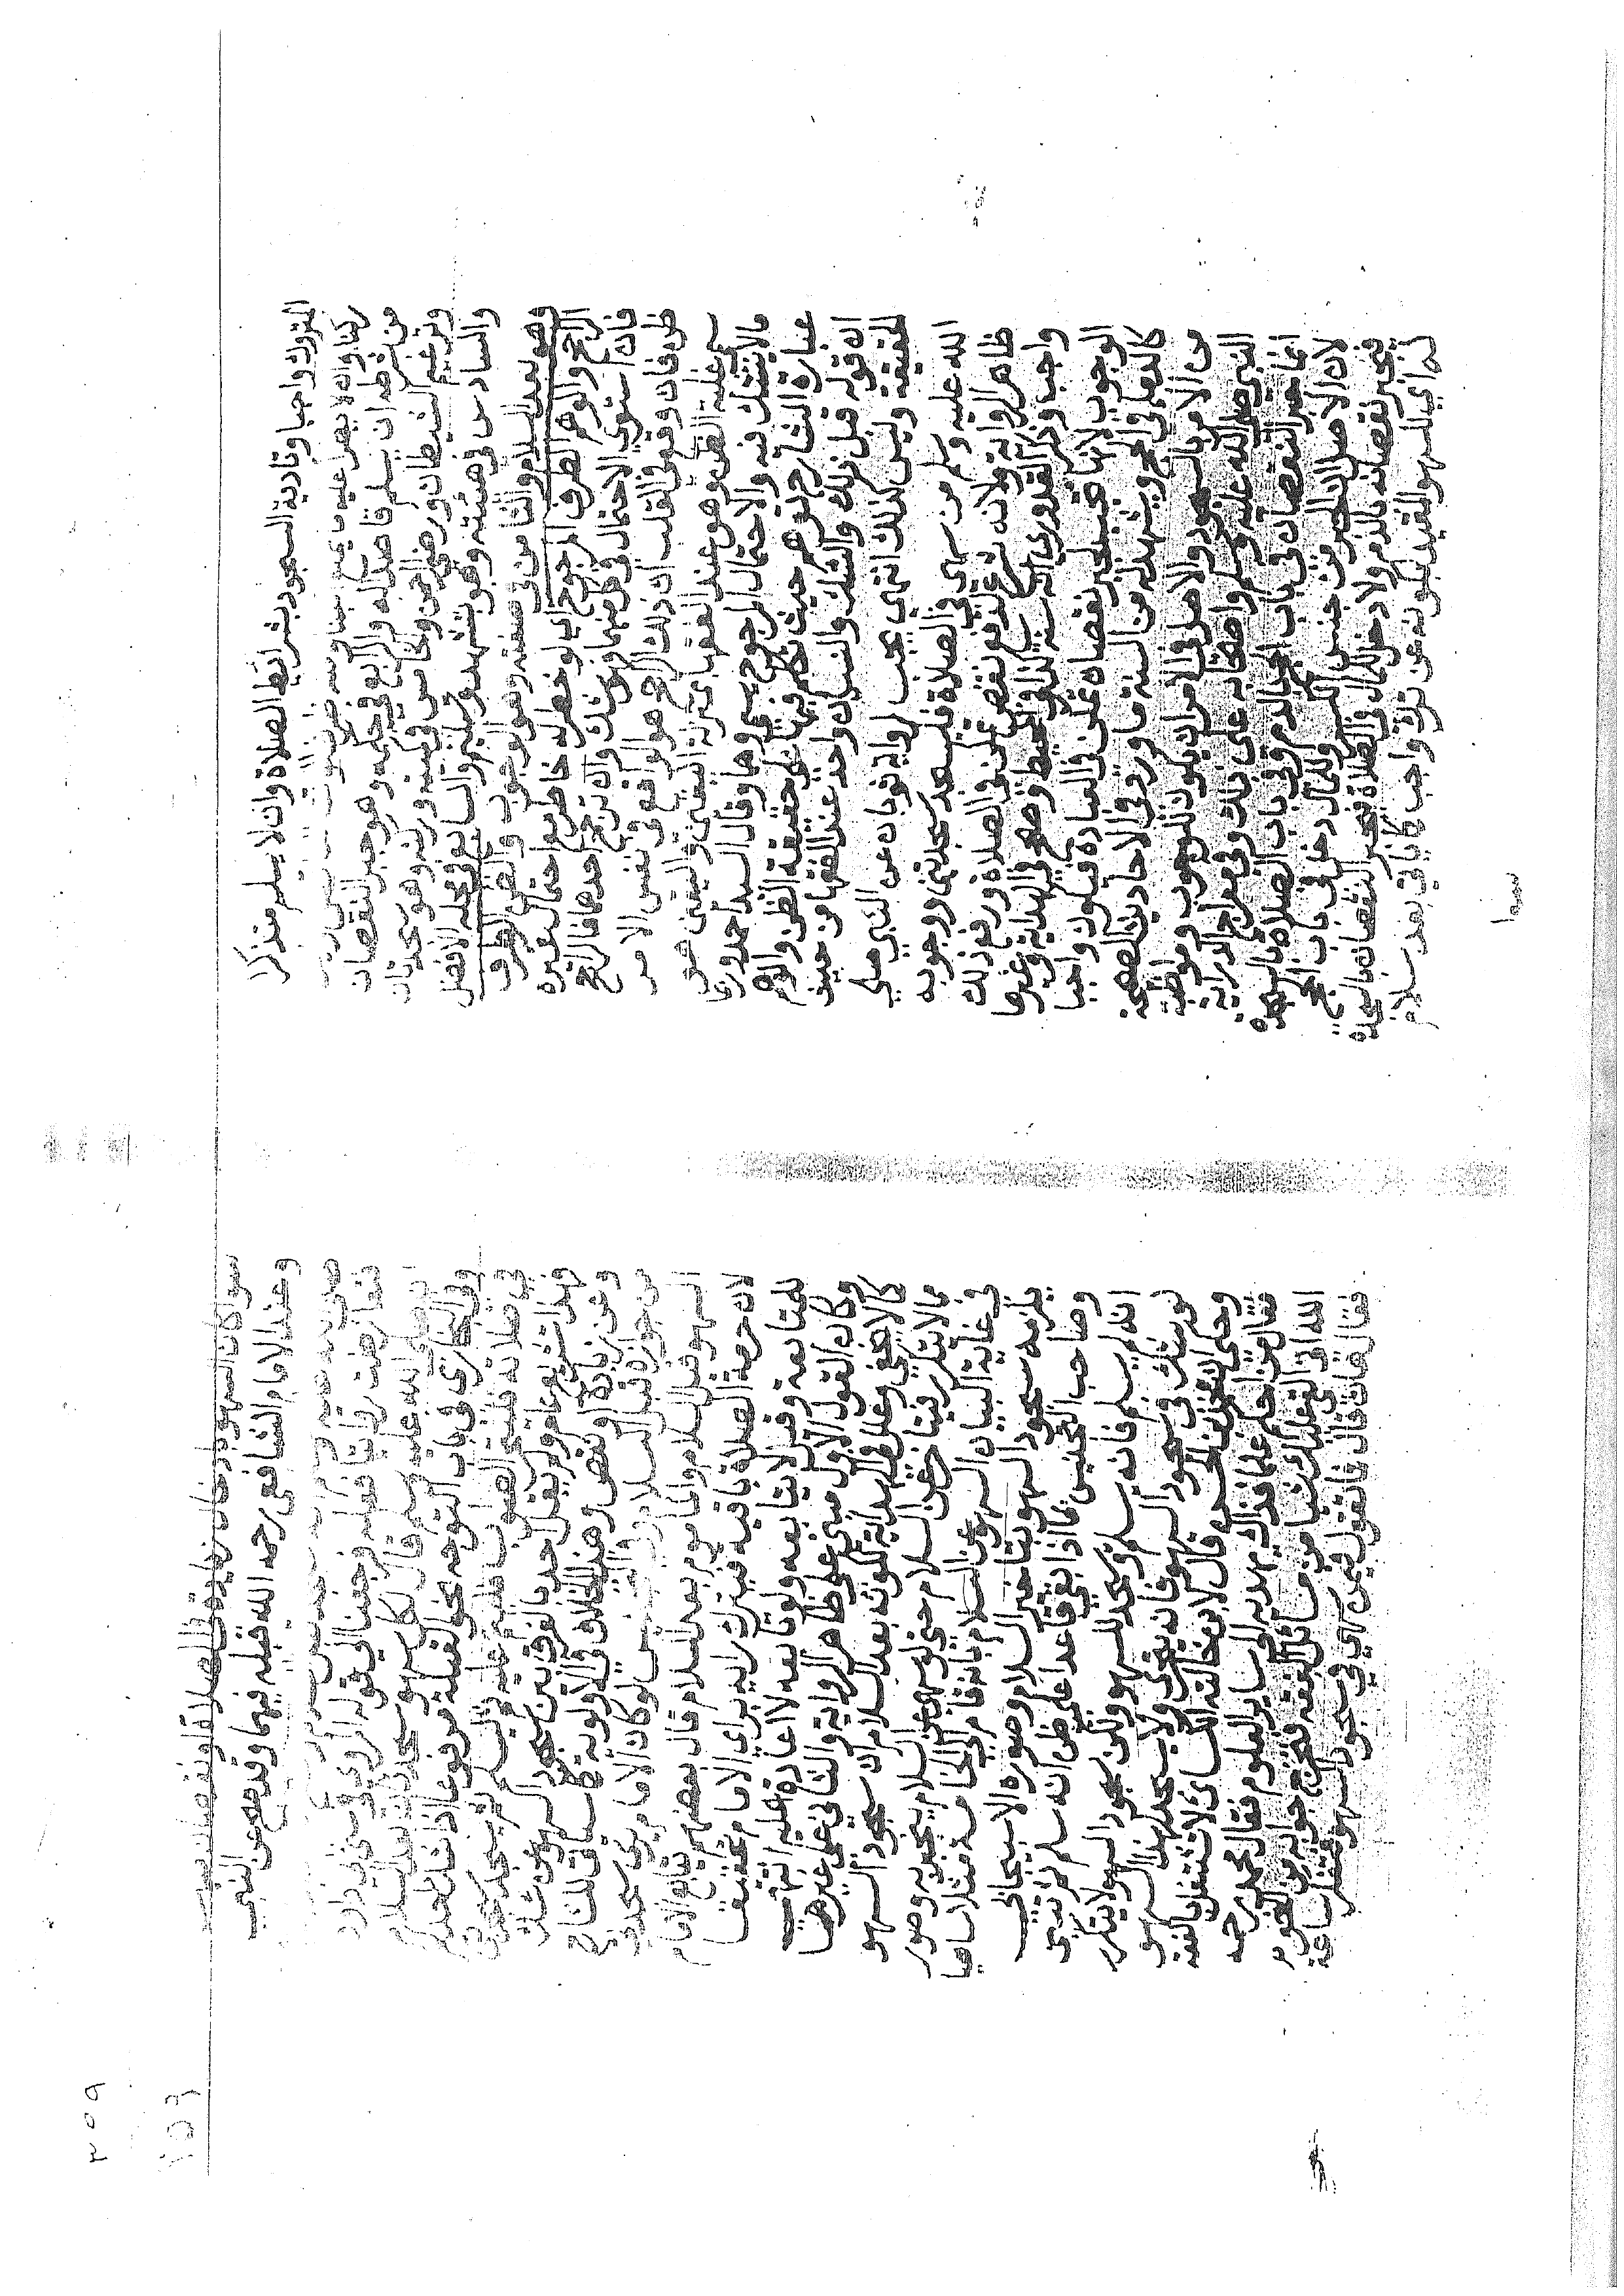 المتروك واجبا وتارة السجود بشرائط الصلاة وان لا يسلم متذكرا
ركنا وان لا يصر عليه
من شرطه ان يسلم قاصدا له والرابع في حكمه وهو جبر النقصان
وترغيم الشيطان ورضا الرحمن والخامس في كميته وركنه وهو سجدتان
والسادس في صفته وهو بتشهد وتسليم والسابع في محله الافضل
وهو بعد السلام والثامن في صفته وهو الوجوب والظن الطرف
الراجح والوهم الطرف المرجوح اي لو خطر له خاطر احتمال غيره
فان استوى الاحتمال فهو شك وان ترجح احدهما فالراجح
ظن فان وقوعه في القلب ان ذلك الراجح هو الواقع في نفس الامر
سمي غلبة الظن وهو عند الفقها بمنزلة اليقين واليقين هو
ما لا يتشكك فيه والاحتمال المرجوح يسمى وهما وقال السيد احمد
عبارة الشارح توهم حيث تكلم فيما على حقيقة الظن والوهم
ان قوله قبل ذلك والشك والنسيان واحد عند الفقها من حيث
الحقيقة وليس كذلك انتهى يجب لرواية ثوبان عن النبي صلى
الله عليه وسلم من سهى في الصلاة فليسجد سجدتين ووجوبه
ظاهر الرواية ولانه شرع لرفع نقص تمكن في الصلاة ورفع ذلك
واجب وذكر القدوري انه سنة كذا في المحيط وصحح في الهداية وغيرها
الوجوب لانها تجب لجبر نقصان تمكن في العبادة فيكون واجبا
كالدماء في الحج ويشهد له من السنة ما ورد في الاحاديث الصحيحة
من الامر بالسجود والاصل في الامر ان يكون للوجوب ومواظبة
النبي صلى الله عليه وسلم واصحابه على ذلك وفي معراج الدراية
انما جبر النقصان في باب الحج بالدم وفي باب الصلاة بالسجدة
لان الاصل ان الجبر من جنس الكسر وللمال دخل في باب الحج
فيجبر نقصانه بالدم ولا دخل للمال في الصلاة فجبر النقصان بالسجدة
له اي للسهو المقيد بكونه عن ترك واجب كما ياتي بعد سلام
سوا كان السهو بادخال زيادة في الصلاة او نقصان
وعند الامام الشافعي رحمه الله قبله فيهما وقد صح عن النبي
فتعارضت روايتا فعله فرجعنا الى قوله المروي في سنن ابي داود
صلى الله عليه وسلم قال لكل سهو سجدتان بعد السلام
وفي البخاري في باب التوجه نحو القبلة مرفوعا اذا شك احدكم
في صلاته فليتحر الصواب فليتم عليه ثم ليسلم ثم يسجد سجدتين
وهذا تشريع عام ولم يفعل احد بالفرق بين سجود السهو عن شك
وعن زيادة او نقص وهذا الخلاف في الاولوية كما سياتي للشارح
من جوازه قبل السلام لو كان الامام يرى سجدتي
السهو قبل السلام والماموم بعد السلام قال بعضهم يتابع الامام
لان حرمة الصلاة باقية فيترك رايه براي الامام تحقيقا
للمتابعة وقيل لا يتابعه ولو تابعه لا اعادة عليه انتهى
وكان القول الاول مبني على ظاهر الرواية والثاني على غيرها
كما لا يخفى وعلل في الهداية لكونه بعد السلام ان سجود السهو
مما لا يتكرر فيتاخر عن السلام حتى لو سهى عن السلام ينجبر به وصور
في غاية البيان السهو عن السلام بان قام الى الخامسة مثلا ساهيا
يلزمه سجود السهو بتاخير السلام وصوره الاسبيجابي
وصاحب التجنيس بما اذا بقي قاعدا على ظن انه سلم ثم تبين
انه لم يسلم فانه يسلم ويسجد للسهو ولكن سجود السهو لا يتكرر
لو شك في سجود السهو فانه يتحرى ولا يسجد لهذا السهو
وحكى ان محمد بن الحسن قال لابن خالته الكسائي لا تشتغل بالفقه
فقال من احكم علما فذاك يهديه الى ساير العلوم فقال محمد رحمه
الله انا القي عليك شيئا من مسائل الفقه فتخرج جوابه من النحو
فقال هات قال فما تقول فيمن سهى في سجود السهو فتفكر ساعة
٣٥٩